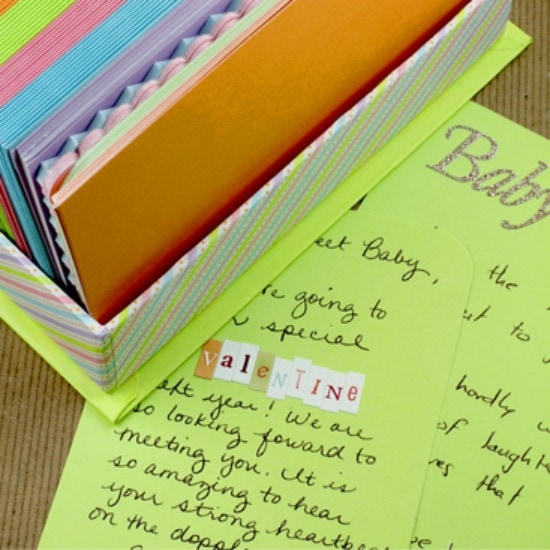 Baby
eet Baby,
re going to
special
VaLeNTINe
eft year! We are
so looking foward to
meeting you. It is
so amazing to hear
your strong heartbea
on the dopple
the
ut to
hardly w
of laught
es that